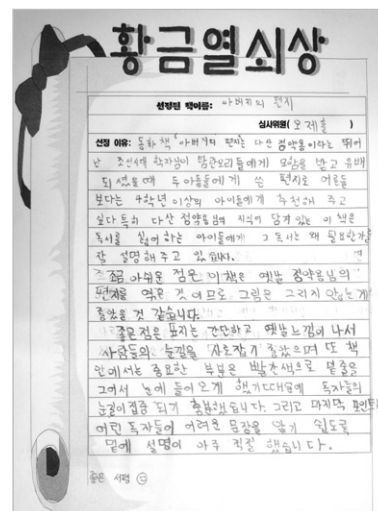 황금열쇠상
선정된 책이름: 아버지의 편지
심사위원( 오제훈 )
선정 이유: 동화책 "아버지의 편지"는 다산 정약용이라는 뛰어
난 조선시대 학자님이 탐관오리들에게 모함을 받고 유배
되셨을 때 두 아들들에게 쓴 편지로 어른들
보다는 4학년 이상의 아이들에게 추천해 주고
싶다 특히 다산 정약용님의 지식이 담겨 있는 이 책은
독서를 싫어 하는 아이들에게 그 독서는 왜 필요한가를
잘 설명해 주고 있습니다.
조금 아쉬운 점은 이책은 옛날 정약용님의
편지를 엮은 것 이므로 그림은 그리지 않는게
좋았을 것 같습니다.
좋은점은 표지는 간단하고 옛날느낌이 나서
사람들의 눈길을 사로잡기 좋았으며 또 책
안에서는 중요한 부분은 빨간색으로 밑줄을
그어서 눈에 들어 오게 했기때문에 독자들의
눈길이 집중 되기 충분했습니다. 그리고 마지막 포인트
어린 독자들이 어려운 문장을 알기 쉽도록
밑에 설명이 아주 적절 했습니다.
좋은 서평